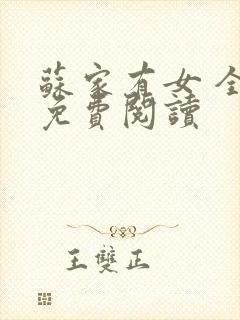 蘇家有女 全
免費閱讀
王雙正